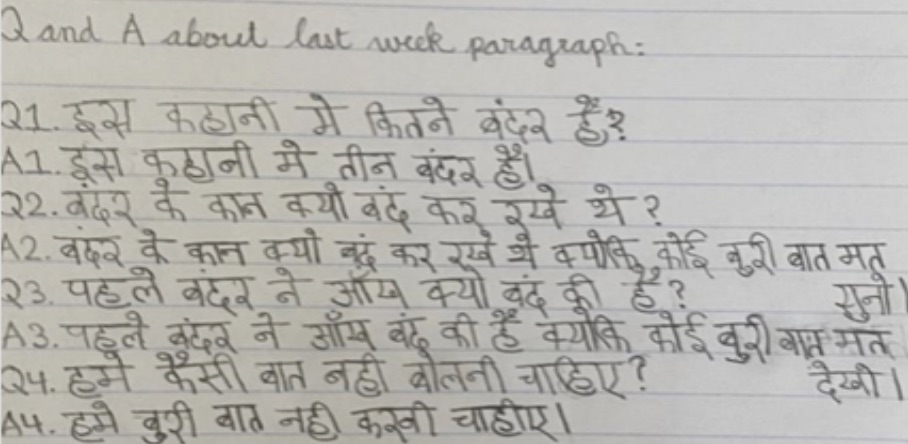 Q and A about last week paragraph:
Q1. इस कहानी मे कितने बंदर हैं?
A1. इस कहानी मे तीन बंदर हैं।
Q2. बंदर के कान क्यो बंद कर रखे थे?
A2. बंदर के कान क्यो बंद कर रखे थे क्योकि कोई बुरी बात मत
सुनो।
Q3. पहले बंदर ने आँख क्यो बंद की है?
A3. पहले बंदर ने आँख बंद की है क्योकि कोई बुरी बात मत
देखी।
Q4. हमे कैसी बात नही बोलनी चाहिए?
A4. हमे बुरी बात नही करनी चाहीए।